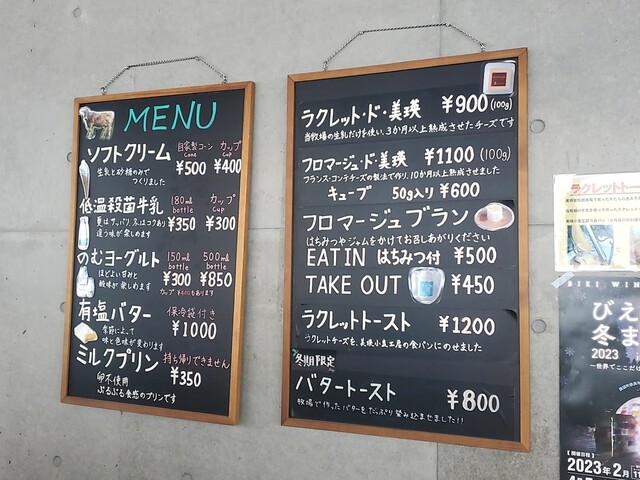 MENU
ソフトクリーム
自家製コーン カップ
Cone Cup
¥500 ¥400
生乳と砂糖のみで
つくりました
低温殺菌牛乳
180ml カップ
bottle Cup
¥350 ¥300
夏はサッパリ、冬はコクあり
違う味が楽しめます
のむヨーグルト
150ml 500ml
bottle bottle
¥300 ¥850
ほどよい甘みと
酸味が楽しめます
有塩バター
保冷袋付き
¥1000
季節によって
味と色味が変わります
ミルクプリン
持ち帰りできません
¥350
卵不使用
ぷるぷる食感のプリンです
ラクレット・ド・美瑛 ¥900(100g)
当牧場の生乳だけを使い、3か月以上熟成させたチーズです
フロマージュ・ド・美瑛 ¥1100(100g)
フランス・コンテチーズの製法で作り、10か月以上熟成させました
キューブ 50g入り ¥600
フロマージュブラン
はちみつやジャムをかけてお召しあがりください
EAT IN はちみつ付 ¥500
TAKE OUT ¥450
ラクレットトースト ¥1200
ラクレットチーズを、美瑛小麦工房の食パンにのせました
冬期限定
バタートースト ¥800
牧場で作ったバターをたっぷり染み込ませました!!
ラクレットトー
BIEI WIN
びえ
冬ま
2023
2023年2月11